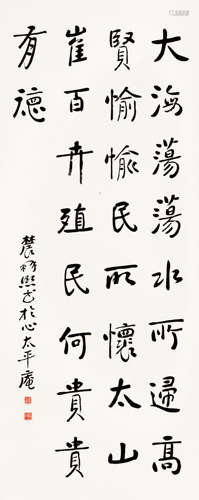 大海蕩蕩水所歸高
賢愉愉民所懷太山
崔百卉殖民何貴貴
有德
農髯熙书於心太平庵